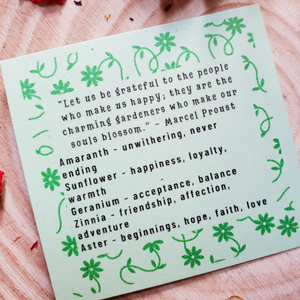 "Let us be grateful to the people
who make us happy; they are the
charming gardeners who make our
souls blossom." – Marcel Proust
Amaranth - unwithering, never
ending
Sunflower - happiness, loyalty,
warmth
Geranium - acceptance, balance
Zinnia - friendship, affection,
adventure
Aster - beginnings, hope, faith, love